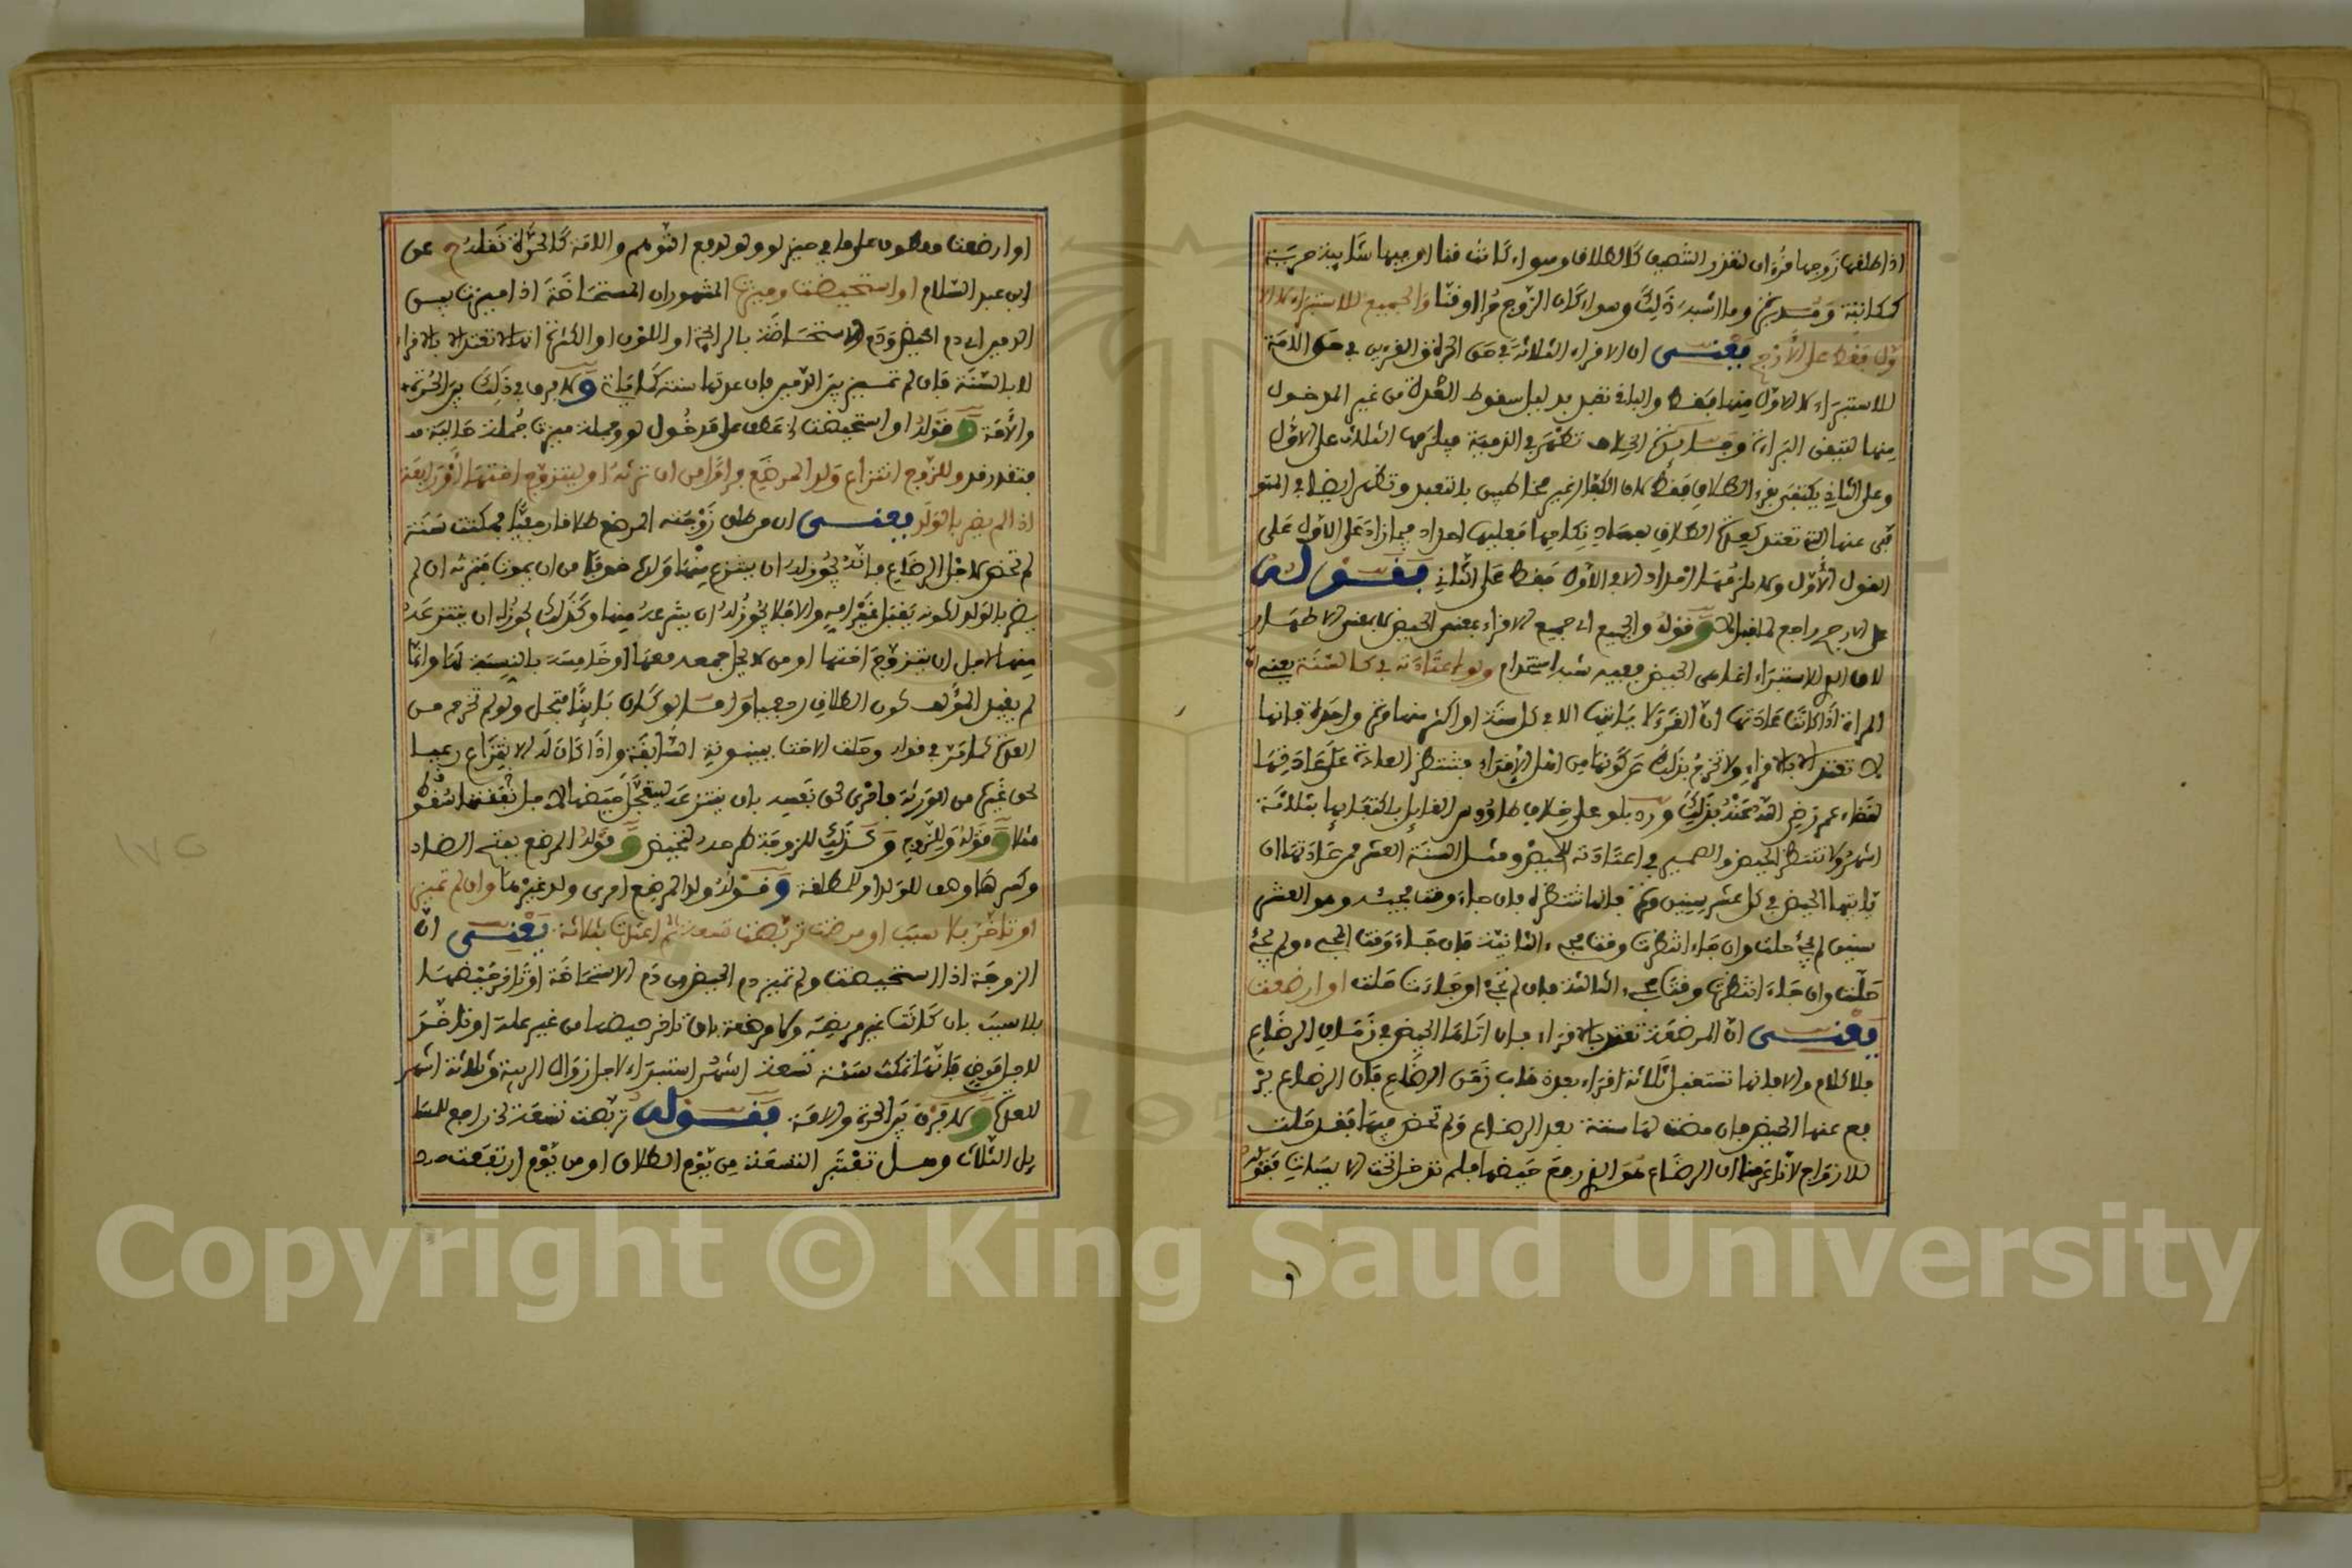 اذا طلقها زوجها قرءان لتعذر التنصيف كالطلاق وسواء كانت قنا او فيها شائبة حرية
كمكاتبة ومدبرة وما اشبه ذلك وسواء كان الزوج حرا او قنا والجميع للاستبراء لا الا
ول فقط على الارجح يعني ان الاقراء الثلاثة في حق الحرة والقرءين في حق الامة
للاستبراء لا الاول منها فقط والباقي تعبد بدليل سقوط العدة من غير المدخول
منها لتيقن البراءة وفائدة الخلاف تظهر في الذمية فيلزمها الثلاث على الاول
وعلى الثاني يكتفى بقرء الطلاق فقط لان الكفار غير مخاطبين بالتعبد وتظهر ايضا في المتو
فى عنها التي تعتد كعدة الطلاق
القول الاول ولا يلزمها احداد الا في الاول فقط على الثاني فقوله
على الارجح راجع لما قبل لا وقوله والجميع اي جميع الاقراء بمعنى الحيض لا بمعنى الاطهار
لان الدال للاستبراء انما هي الحيض ففيه شبه استخدام ولو اعتادته في كالسنة يعني ان
المراة اذا كانت عادتها ان القرء لا ياتيها الا في كل سنة او اكثر منها مرة واحدة فانها
لا تعتد الا بالاقراء ولا تخرج بذلك عن كونها من اهل الاقراء فتنتظر العادة على عادتها
لقضاء عمر رضي الله عنه بذلك ورد بلو على خلاف طاووس القايل باكتفايها بثلاثة
اشهر ولا تنتظر الحيض والضمير في اعتادته للحيض ومثل السنة العشر فمن عادتها ان
ياتيها الحيض في كل عشر سنين مرة فانها تنتظره فان جاء وقت مجيئه وهو العشر
سنين لم يجئ حلت وان جاء انتظرت وقت مجيء الثانية فان جاء وقت المجيء ولم يجئ
حلت وان جاء انتظرت وقت مجيء الثالثة فان لم يجئ او جاءت حلت او ارضعت
يعني ان المرضعة تعتد بالاقراء فان اتاها الحيض في زمان الرضاع
فلا كلام والا فانها تستقبل ثلاثة اقراء بعد ذهاب زمن الرضاع فان الرضاع ير
فع عنها الحيض فان مضت لها سنة بعد الرضاع ولم تحض فيها فقد حلت
للازواج لانا عرفنا ان الرضاع هو الذي رفع حيضها فلم تدخل تحت الا يسات فقوله
و
او ارضعت معطوف على ما في حيز لو ولو لدفع التوهم والامة كالحرة نقله ح عن
ابن عبد السلام او استحيضت وميزت المشهور ان المستحاضة اذا ميزت بين
الدمين اي دم الحيض ودم الاستحاضة بالرائحة او اللون او الكثرة انها لا تعتد الا بالاقراء
لا بالسنة فان لم تميز بين الدمين فان عدتها سنة كما ياتي ولا فرق في ذلك بين الحرة
والامة وقوله او استحيضت الخ عطف على مدخول لو وجملة ميزت جملة حالية
فتقدر قد وللزوج انتزاع ولد المرضع فرارا من ان ترثه او ليتزوج اختها او رابعة
اذا لم يضر بالولد يعني ان من طلق زوجته المرضع طلاقا رجعيا فمكثت سنة
لم تحض لاجل الرضاع فانه يجوز له ان ينتزع منها ولده خوفا من ان يموت فترثه ان لم
يضر بالولد لكونه يقبل غير امه والا فلا يجوز له ان ينتزعه منها وكذلك يجوز له ان ينتزعه
منها لاجل ان يتزوج اختها او من لا يحل جمعه معها او خامسة بالنسبة لها وانما
لم يقيد المؤلف كون الطلاق رجعيا
العدة كما مر في قوله وحلت الاخت ببينونة السابقة واذا كان له الانتزاع رعيا
لحق غيره من الورثة فاحرى لحق نفسه بان ينتزعه ليتعجل حيضها لاجل نفقتها تسقط
مثلا وقوله وللزوج وكذلك للزوجة طرحه لتحيض وقوله المرضع بفتح الضاد
وكسرها وهي للولد او للمطلقة وقوله ولد المرضع اي ولده غيرها وان لم تميز
او تاخر بلا سبب او مرضت تربصت تسعة ثم اعتدت بثلاثة يعني ان
الزوجة اذا استحيضت ولم تميز دم الحيض من دم الاستحاضة او تاخر حيضها
بلا سبب بان كانت غير مريضة ولا مرضعة بان تاخر حيضها من غير علة او تاخر
لاجل مرض فانها تمكث سنة تسعة اشهر استبراء لاجل زوال الريبة وثلاثة اشهر
للعدة ولا فرق بين الحرة والامة فقوله تربصت تسعة الخ راجع للمسا
يل الثلاث وهل تعتبر التسعة من يوم الطلاق او من يوم ارتفعت
١٧٥
Copyright © King Saud University